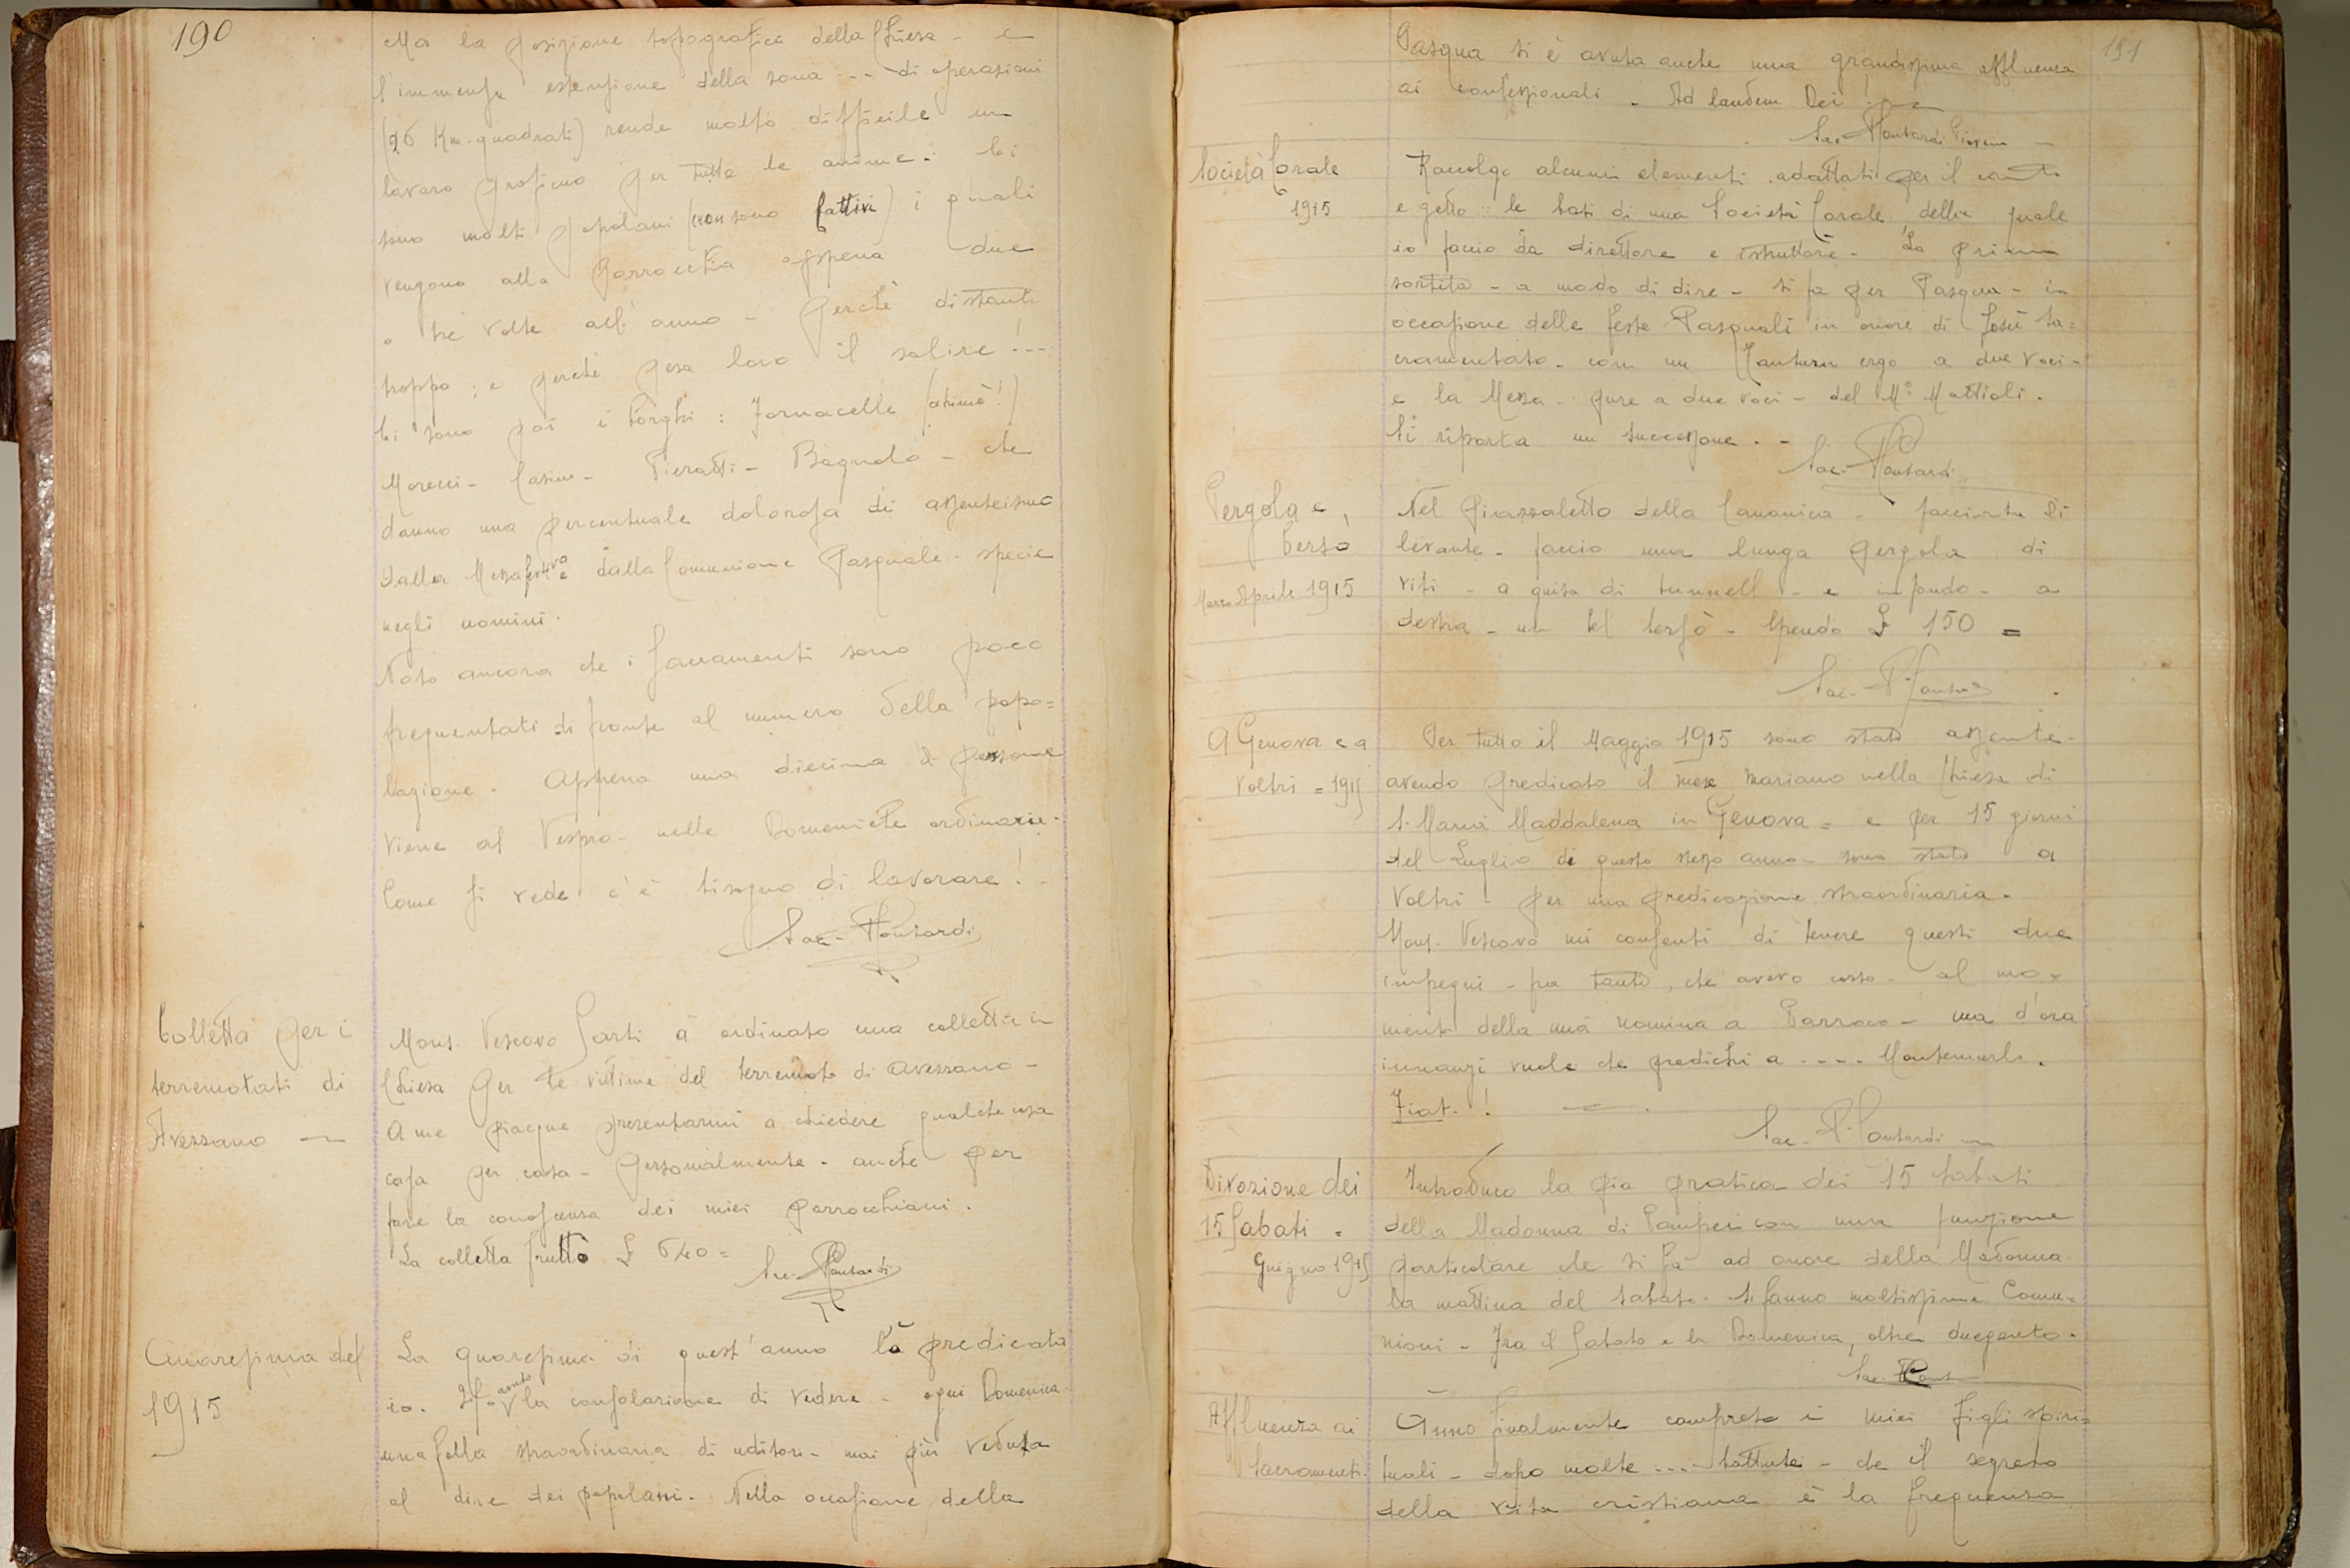 190
Ma la posizione topografica della Chiesa - e
l'immensa estensione della zona --- di operazioni
(26 Km. quadrati) rende molto difficile un
lavoro proficuo per tutte le anime. Ci
sono molti popolani (non sono fattivi) i quali
vengono alla Parrocchia appena due
o tre volte all'anno - perchè distanti
troppo; e perchè pesa loro il salire! ---
Ci sono poi i Borghi: Fornacelle (ahimè!)
Morecci - Casine - Pieratti - Bagnolo - che
danno una percentuale dolorosa di assenteismo
dalla Messa festiva e dalla Comunione Pasquale - specie
negli uomini.
Noto ancora che i Sacramenti sono poco
frequentati di fronte al numero della popo=
lazione. Appena una diecina di persone
viene al Vespro - nelle Domeniche ordinarie.
Come si vede c'è bisogno di lavorare! -
Sac. P. Contardi
Colletta per i
terremotati di
Avezzano
Mons. Vescovo Sarti à ordinato una colletta in
Chiesa per le vittime del terremoto di Avezzano -
A me piacque presentarmi a chiedere qualche cosa
casa per casa - personalmente - anche per
fare la conoscenza dei miei parrocchiani.
La colletta fruttò £ 640 =
Sac. P. Contardi
Quaresima del
1915
La quaresima di quest'anno l'ò predicata
io. Ho avuto la consolazione di vedere - ogni Domenica -
una folla straordinaria di uditori - mai più veduta
al dire dei popolani. Nella occasione della
191
Pasqua si è avuta anche una grandissima affluenza
ai confessionali. Ad laudem Dei!
Sac. P. Contardi Pievano
Società Corale
1915
Raccolgo alcuni elementi adattati per il canto
e getto le basi di una Società Corale della quale
io faccio da direttore e istruttore. La prima
sortita - a modo di dire - si fa per Pasqua - in
occasione delle feste Pasquali in onore di Gesù Sa=
cramentato - con un Tantum ergo a due voci -
e la Messa - pure a due voci - del M.o Mattioli.
Si riporta un successone. -
Sac. P. Contardi
Pergola e
Bersò
Marzo Aprile 1915
Nel piazzaletto della Canonica - facciata di
levante - faccio una lunga pergola di
viti - a guisa di tunnell - e in fondo - a
destra - un bel bersò - Spendo £ 150 =
Sac. P. Contardi
A Genova e a
Voltri = 1915
Per tutto il Maggio 1915 sono stato assente -
avendo predicato il mese Mariano nella Chiesa di
S. Maria Maddalena in Genova = e per 15 giorni
del Luglio di questo stesso anno - sono stato a
Voltri - per una predicazione straordinaria.
Mons. Vescovo mi consentì di tenere questi due
impegni - fra tanti, che avevo corso - al mo=
mento della mia nomina a Parroco - ma d'ora
innanzi vuole che predichi a ---- Montemurlo.
Fiat!
Sac. P. Contardi
Divozione dei
15 Sabati.
Giugno 1915
Introduco la pia pratica dei 15 sabati
della Madonna di Pompei con una funzione
particolare che si fa ad onore della Madonna
la mattina del sabato. Si fanno moltissime Comu=
nioni - Fra il Sabato e la Domenica, oltre duecento.
Sac. P. Cont
Affluenza ai
Sacramenti.
Ànno finalmente compreso i miei figli spiri=
tuali - dopo molte ---- battute - che il segreto
della vita cristiana è la frequenza